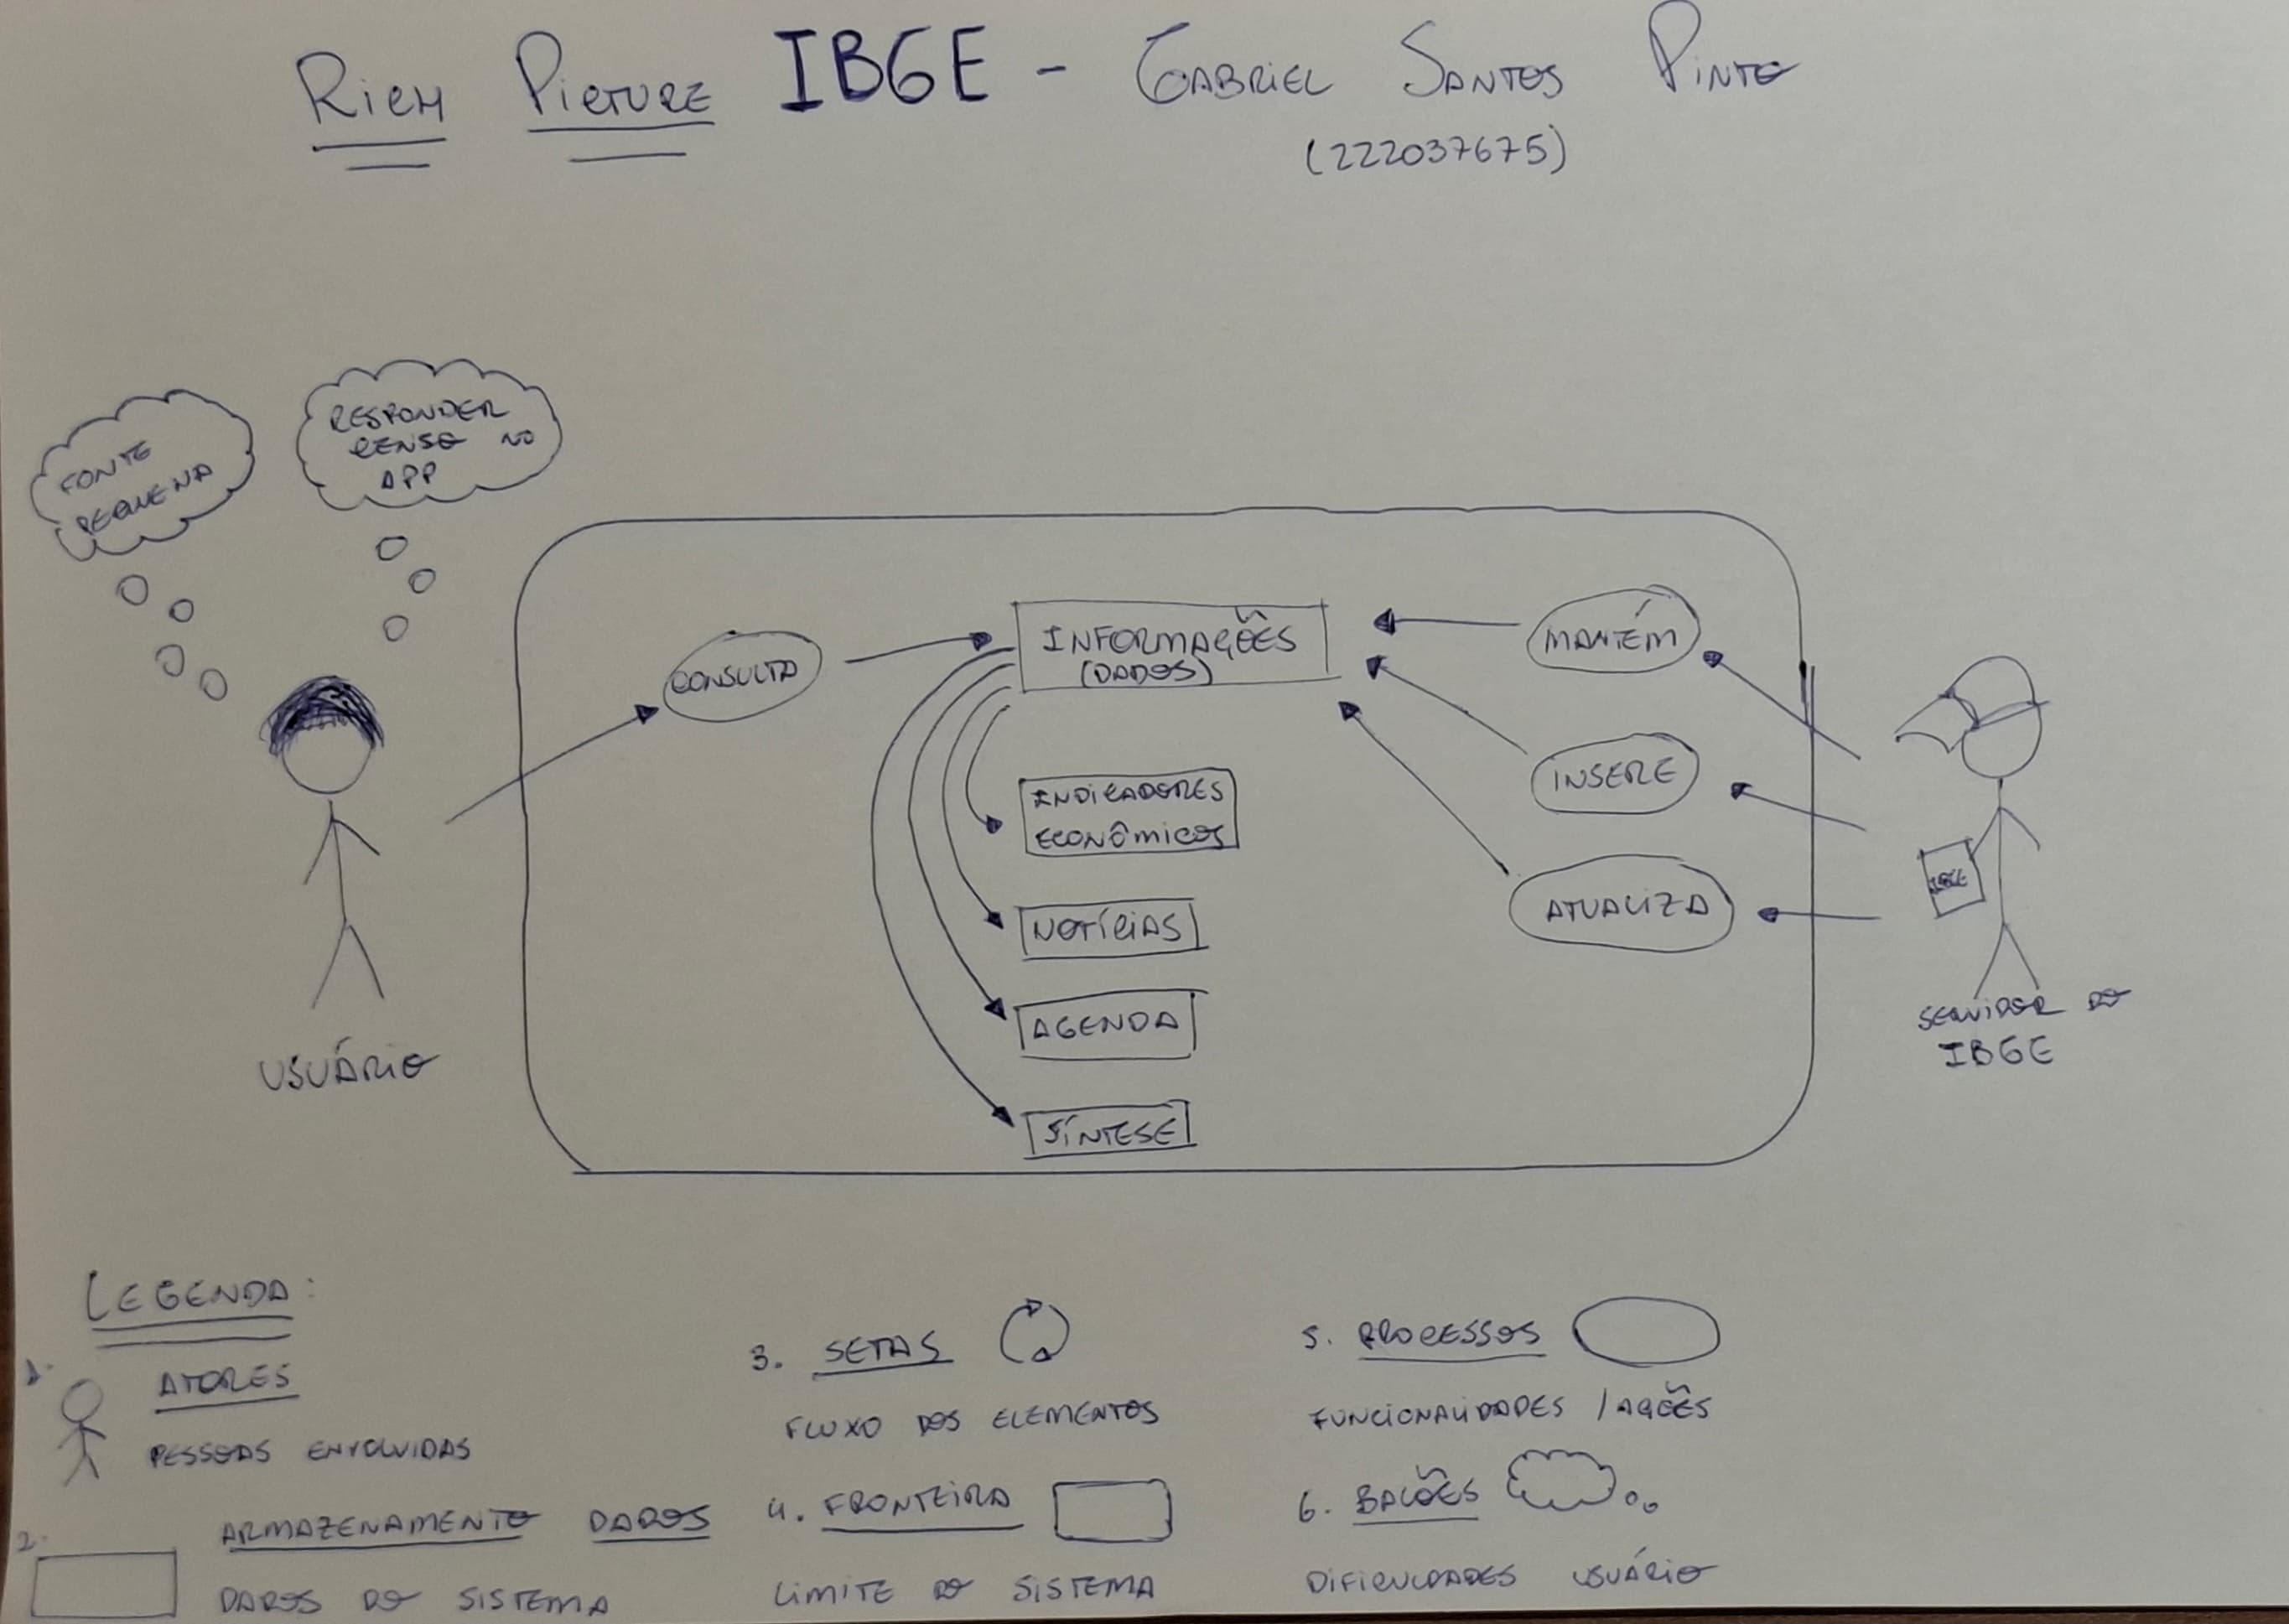 RICH PICTURE IBGE - GABRIEL SANTOS PINTO
(222037675)
FONTE
PEQUENA
RESPONDER
CENSO NO
APP
CONSULTA
INFORMAÇÕES
(DADOS)
INDICADORES
ECONÔMICOS
NOTÍCIAS
AGENDA
SÍNTESE
MANTÉM
INSERE
ATUALIZA
IBGE
USUÁRIO
SERVIDOR DO
IBGE
LEGENDA:
1. ATORES
PESSOAS ENVOLVIDAS
2. ARMAZENAMENTO DADOS
DADOS DO SISTEMA
3. SETAS
FLUXO DOS ELEMENTOS
4. FRONTEIRA
LIMITE DO SISTEMA
5. PROCESSOS
FUNCIONALIDADES / AÇÕES
6. BALÕES
DIFICULDADES USUÁRIO